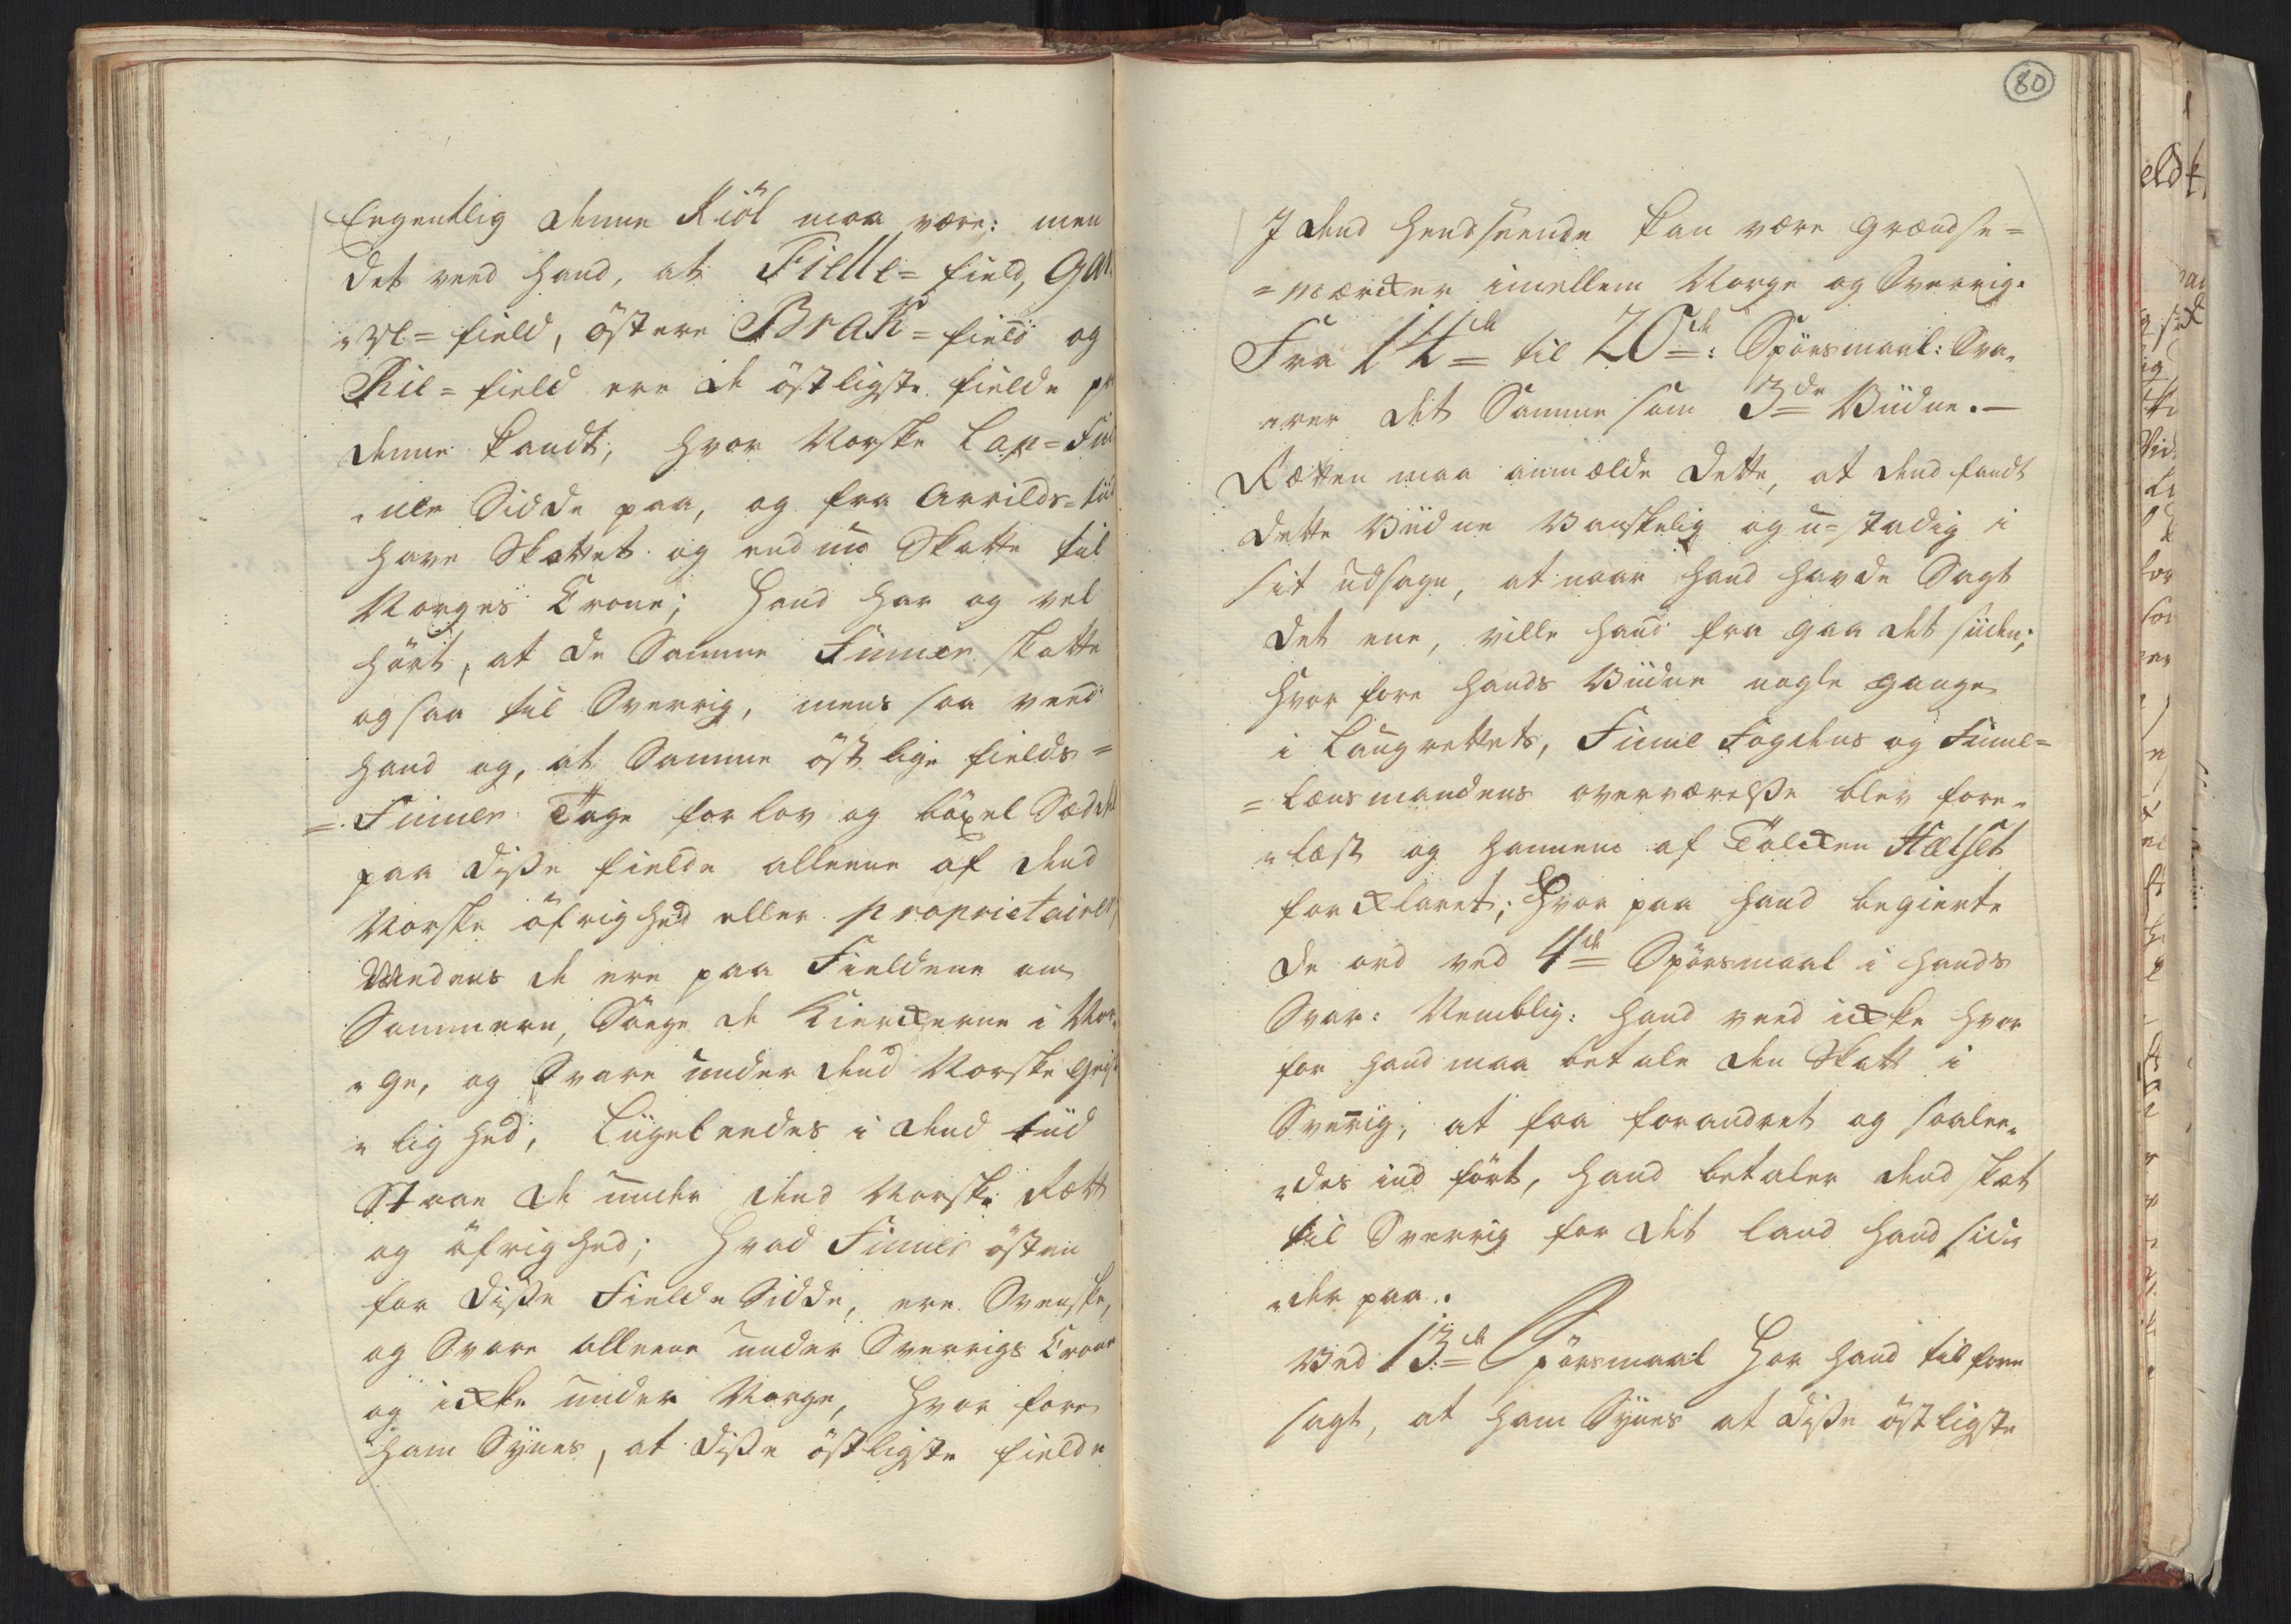 Eegentlig denne Kiöl maa være: men
det veed hand, at Fielle= field, Gar
"vl= field, östere Brak= field og
Kil= field ere de östligste fielde p
denne kandt, hvor Norske Lap= Fin
"ner Sidde paa, og fra Arrilds= tiid
have Skattet og end nu Skatte til
Norges Crone; Hand har og vel
hört, at de Samme Finner skatte
og saa til Sverrig, mens saa veed
hand og, at Samme östlige fields=
=Finner Tage forlov og böxel Sædel
paa diße fielde alleene af dend
Norske öfrighed eller proprietairer
Medens de ere paa Fieldene om
Sommeren, Söege de Kierckerne i Nor
"ge, og Svare under dend Norske Geist
"lighed, Liigeleedes i dend tiid
Staae de under dend Norske Rætt
og öfrighed; Hvad Finner östen
for diße Fielde Sidde, ere Svenske,
og Svare alleene under Sverrigs Crone
og icke under Norge, hvor fore
ham Synes, at diße östligste fielde
80
I dend henseende kan være grændse=
=mærcker imellem Norge og Sverrig.
Fra 14de til 20de: Spörsmaal: Sva"
"rer det Samme som 3de Viidne.—
Rætten maa anmælde dette, at dend fandt
dette Viidne Vanskelig og u=stadig i
sit udsagn, at naar hand havde Sagt
det ene, ville hand fra gaa det siiden;
hvor fore hands Viidne nogle gange
i Laugrettets, Finne Fogdens og Finne=
=Lænsmandens overværelße blev fore"
"læst og hannem af Tolcken Hælset
forcklaret; hvor paa hand begierte
de ord ved 4de Spörsmaal i hands
Svar: Nemblig: hand veed icke hvor
for hand maa betale den Skatt i
Sverrig, at faa forandret og saalee"
"des ind fört, hand betaler dend skat
til Sverrig for det land hand sid"
"der paa.
Ved 13de Spörsmaal har hand tilforn
sagt, at ham Synes at diße östligste